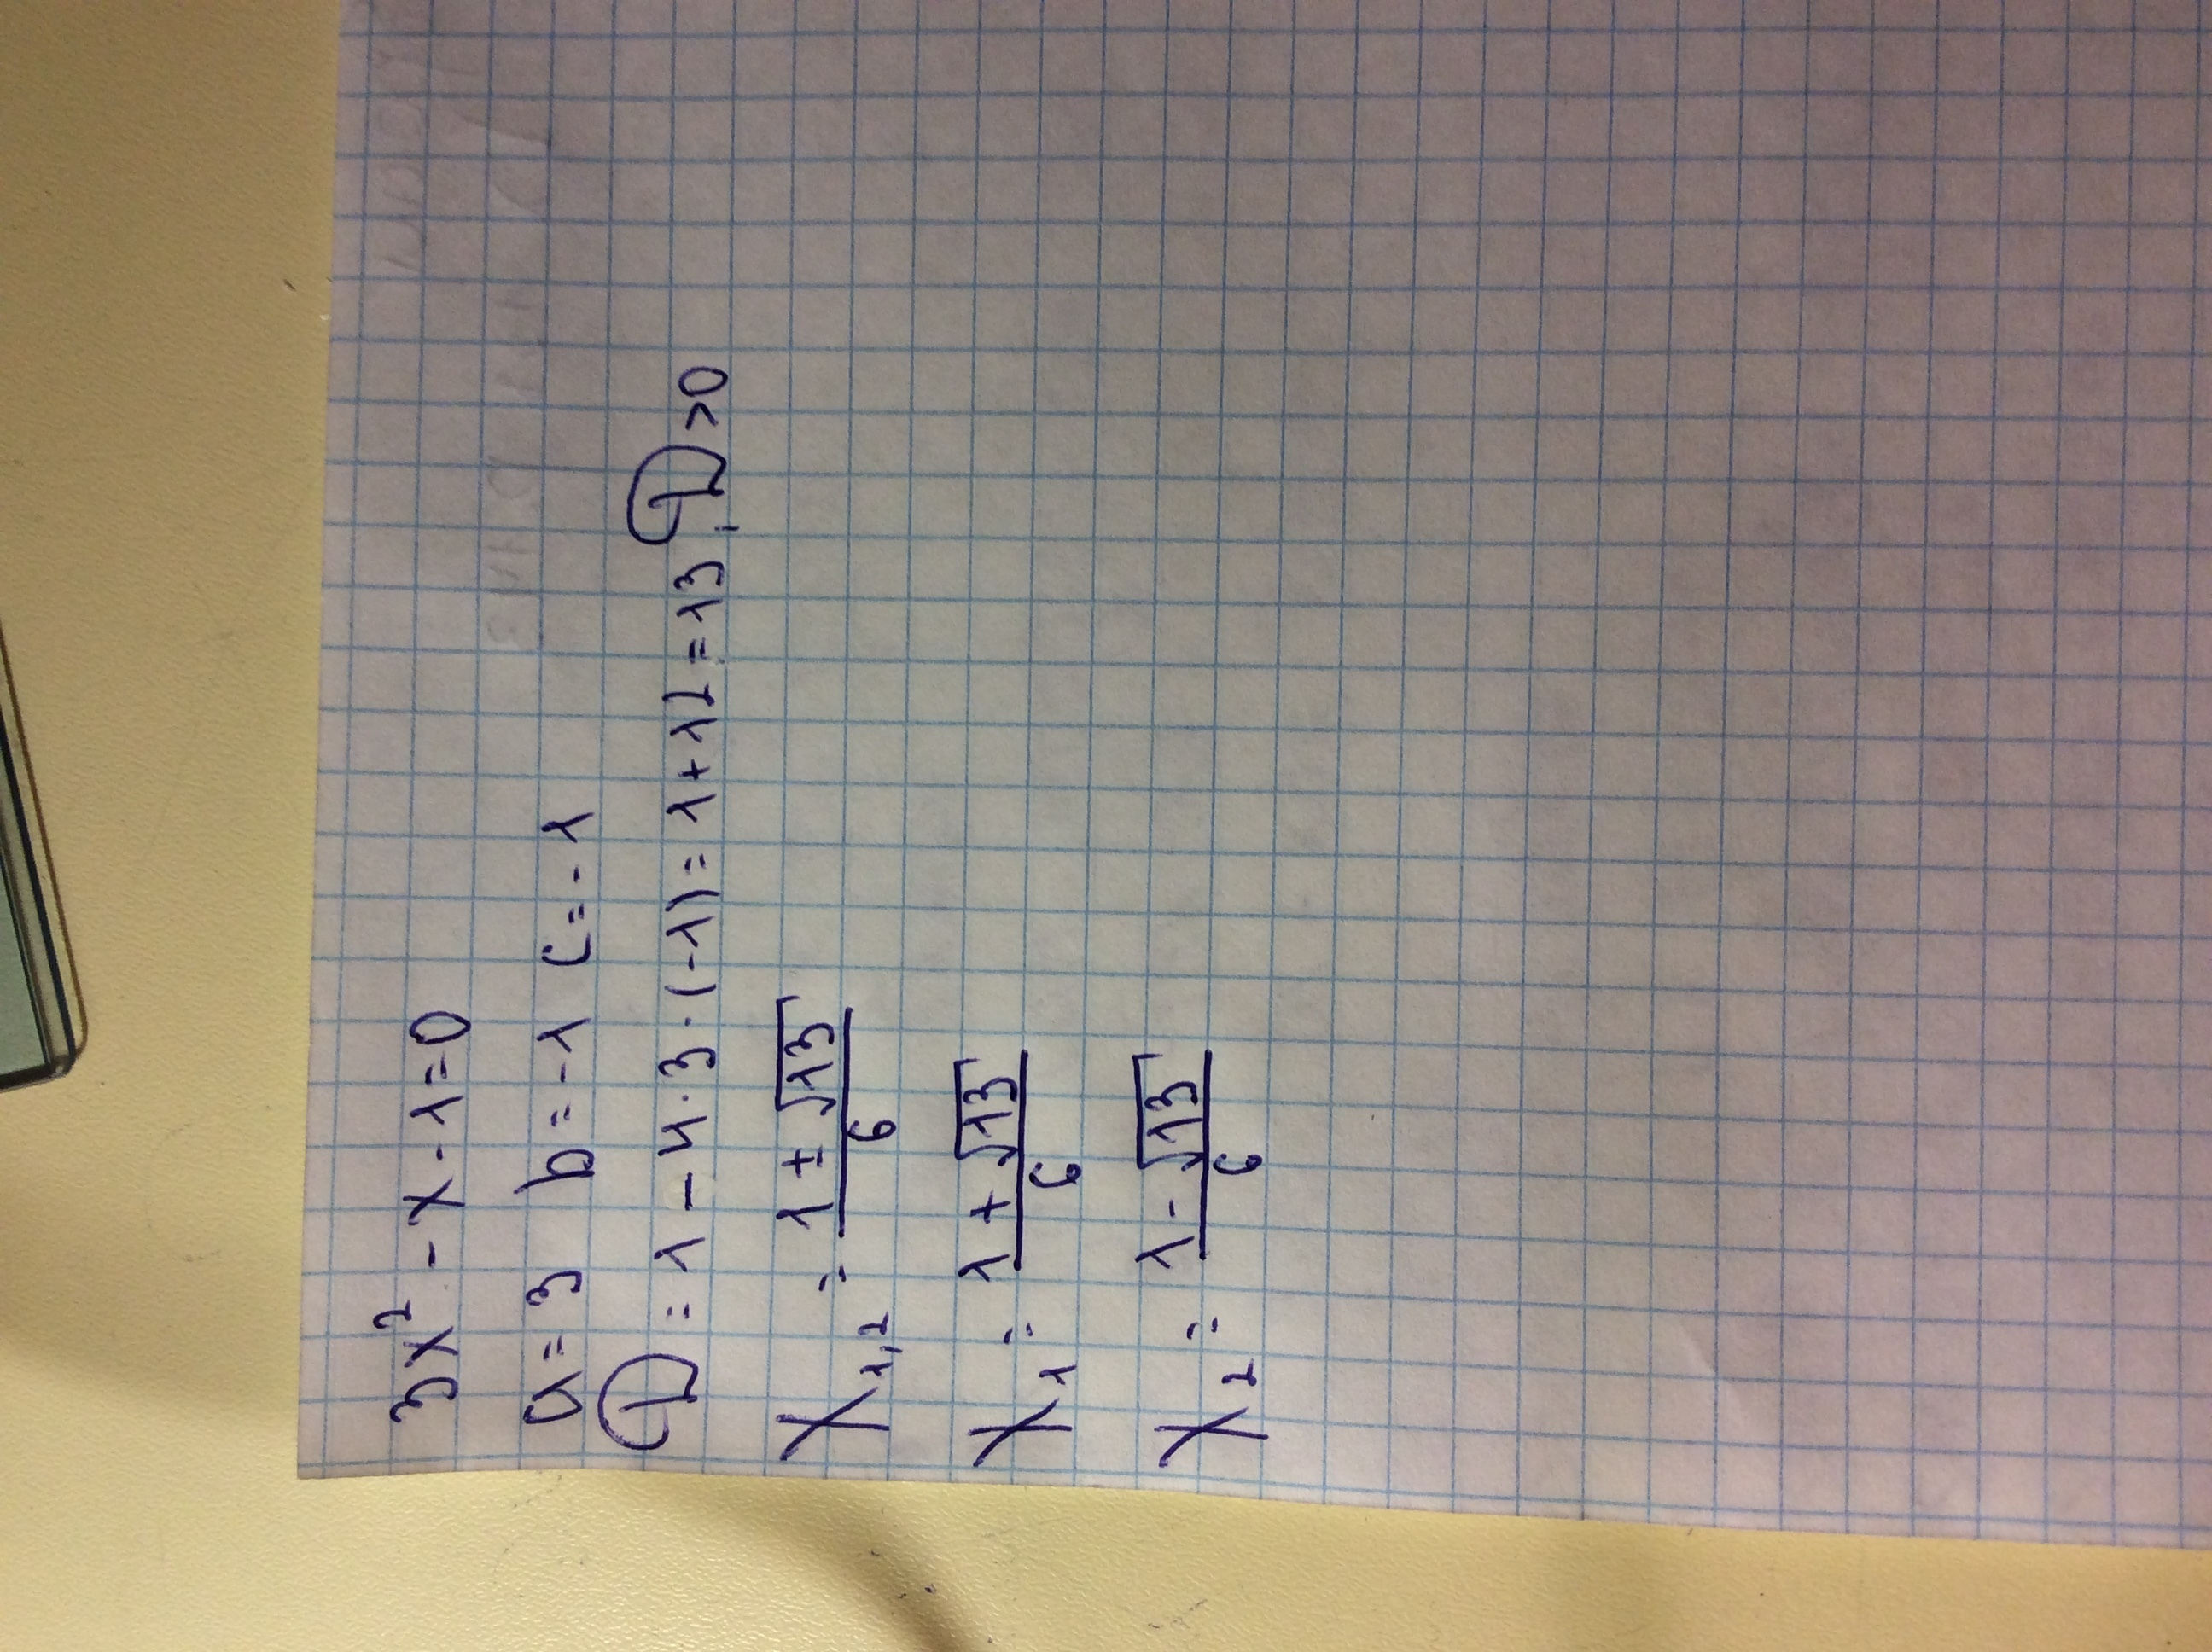 3x² - x - 1 = 0
a = 3 b = -1 c = -1
D = 1 - 4 · 3 · (-1) = 1 + 12 = 13; D > 0
x₁,₂ = (1 ± √13)/6
x₁ = (1 + √13)/6
x₂ = (1 - √13)/6